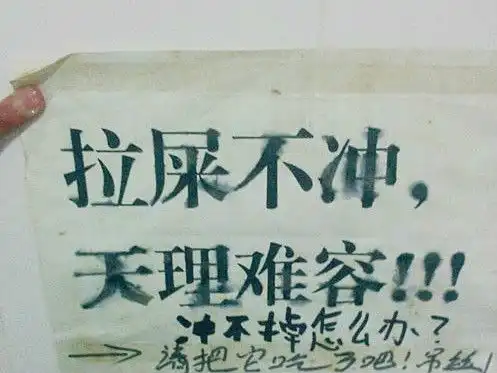 拉屎不冲，
天理难容!!!
冲不掉怎么办？
请把它吃了吧！吊丝！